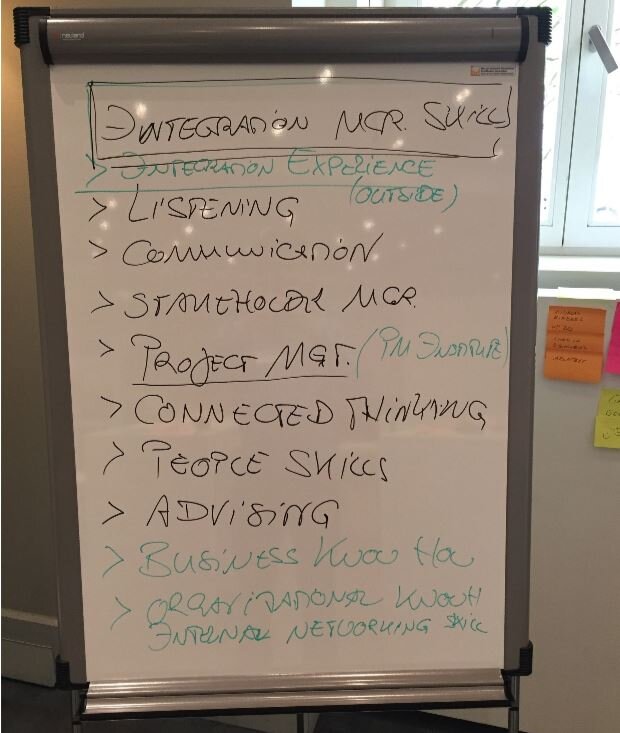 neuland
INTEGRATION MGR. SKILLS
> INTEGRATION EXPERIENCE
(OUTSIDE)
> LISTENING
> COMMUNICATION
> STAKEHOLDER MGR.
> PROJECT MGT. (PM INSTITUTE)
> CONNECTED THINKING
> PEOPLE SKILLS
> ADVISING
> BUSINESS KNOW HOW
> ORGANIZATIONAL KNOWH
INTERNAL NETWORKING SKILL